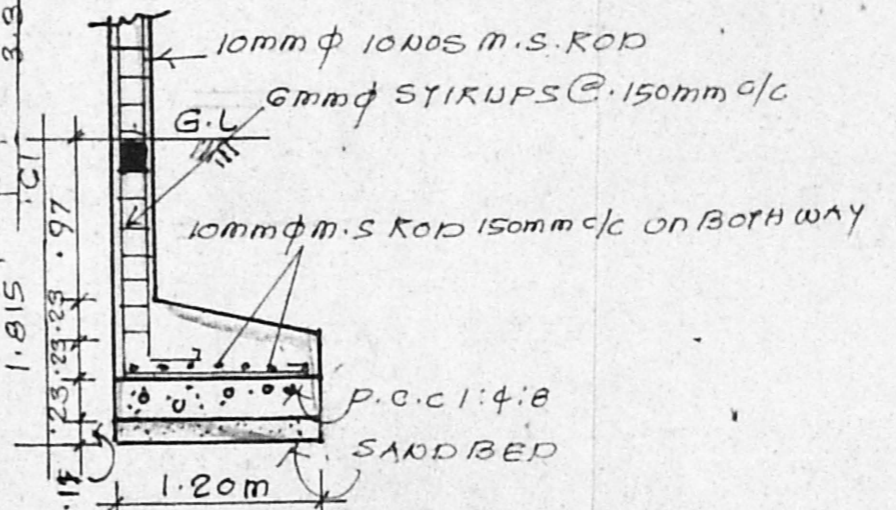 3.3
10mm φ 10NOS M.S. ROD
6mmφ STIRUPS @. 150mm c/c
G.L
C1
10mmφ M.S ROD 150mm c/c ON BOTH WAY
.97
.23
.23
.23
1.815
P.C.C 1:4:8
SAND BED
1.20m